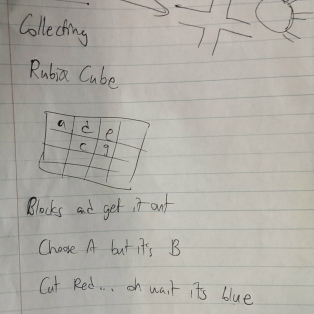 Collecting
Rubix Cube
a d e
c g
Blocks and get it out
Choose A but it's B
Cut Red... oh wait its blue